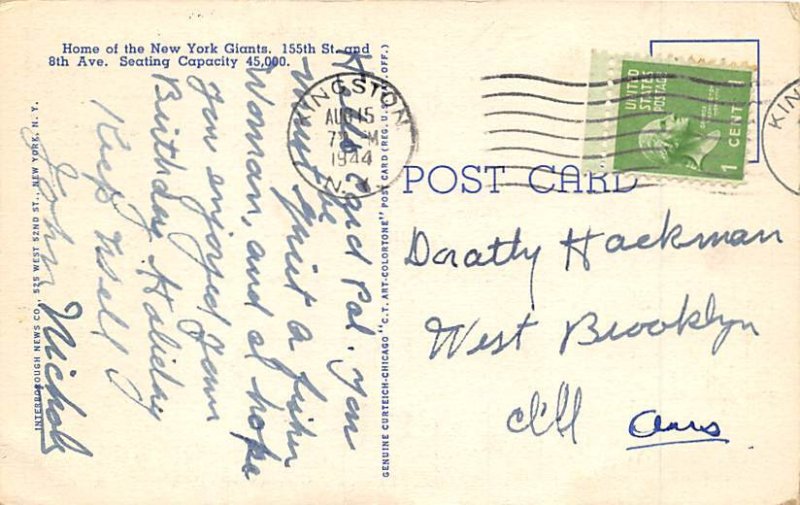 Home of the New York Giants. 155th St. and
8th Ave. Seating Capacity 45,000.
Pal. You
must be quite a
Woman, and I hope
You enjoyed your
Birthday Holiday
Keep Well
John Nichols
INTERBOROUGH NEWS CO., 525 WEST 52ND ST., NEW YORK, N. Y.
GENUINE CURTEICH-CHICAGO "C. T. ART-COLORTONE" POST CARD (REG. U. S. PAT. OFF.)
KINGSTON
AUG 15
1944
N.Y.
UNITED
STATES
POSTAGE
1 CENT 1
KIN
POST CARD
Dorothy Hackman
West Brooklyn
Cliff